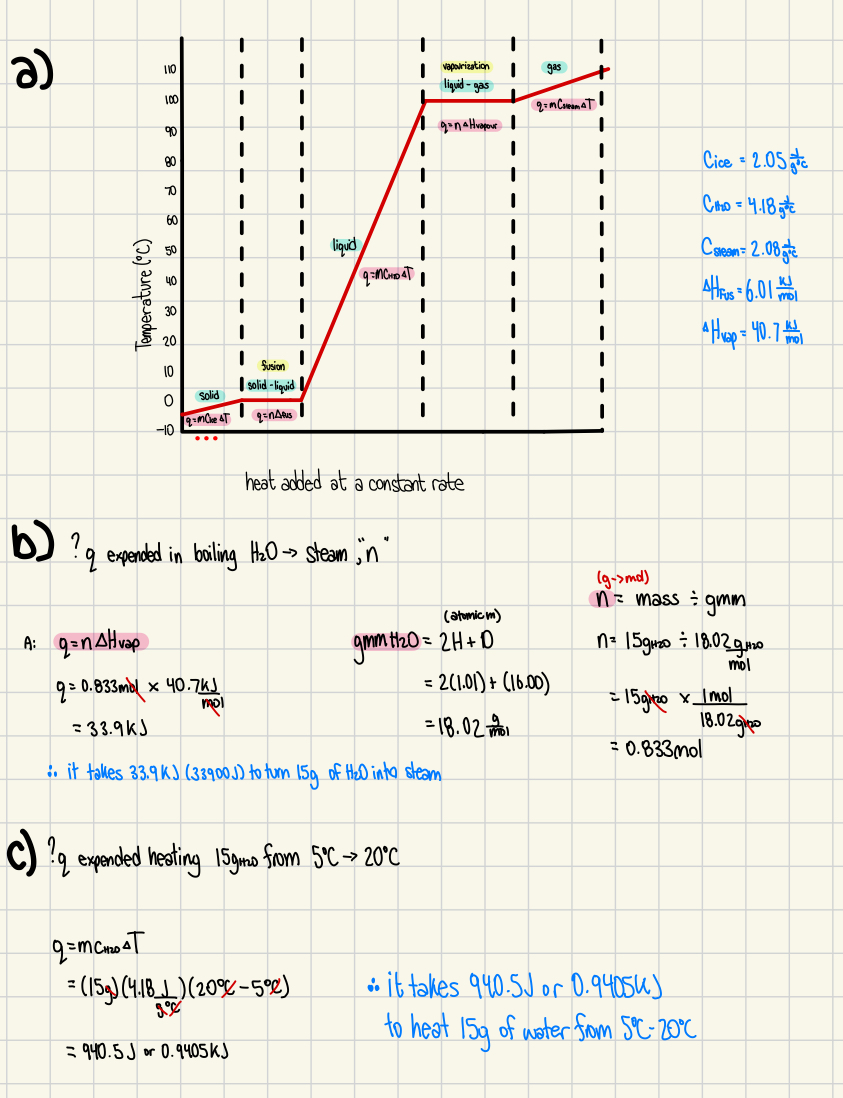 a)
110
100
90
80
70
60
50
40
30
20
10
0
-10
Temperature (°C)
heat added at a constant rate
solid
q=mCiceΔT
fusion
solid-liquid
q=nΔFus
liquid
q=mCH₂OΔT
vapourization
liquid-gas
q=nΔHvapour
gas
q=mCsteamΔT
Cice = 2.05 J/g°C
CH₂O = 4.18 J/g°C
Csteam = 2.08 J/g°C
ΔHFus = 6.01 kJ/mol
ΔHvap = 40.7 kJ/mol
b) ? q expended in boiling H₂O → steam ; "n"
A: q=nΔHvap
q= 0.833mol × 40.7kJ/mol
= 33.9kJ
(atomic m)
gmm H₂O = 2H + O
= 2(1.01) + (16.00)
= 18.02 g/mol
(g->mol)
n = mass ÷ gmm
n= 15gH₂O ÷ 18.02 gH₂O/mol
= 15gH₂O × 1mol/18.02gH₂O
= 0.833mol
∴ it takes 33.9kJ (33900J) to turn 15g of H₂O into steam
c) ? q expended heating 15gH₂O from 5°C → 20°C
q=mCH₂OΔT
= (15g)(4.18 J/g°C)(20°C - 5°C)
= 940.5J or 0.9405kJ
∴ it takes 940.5J or 0.9405kJ
to heat 15g of water from 5°C-20°C